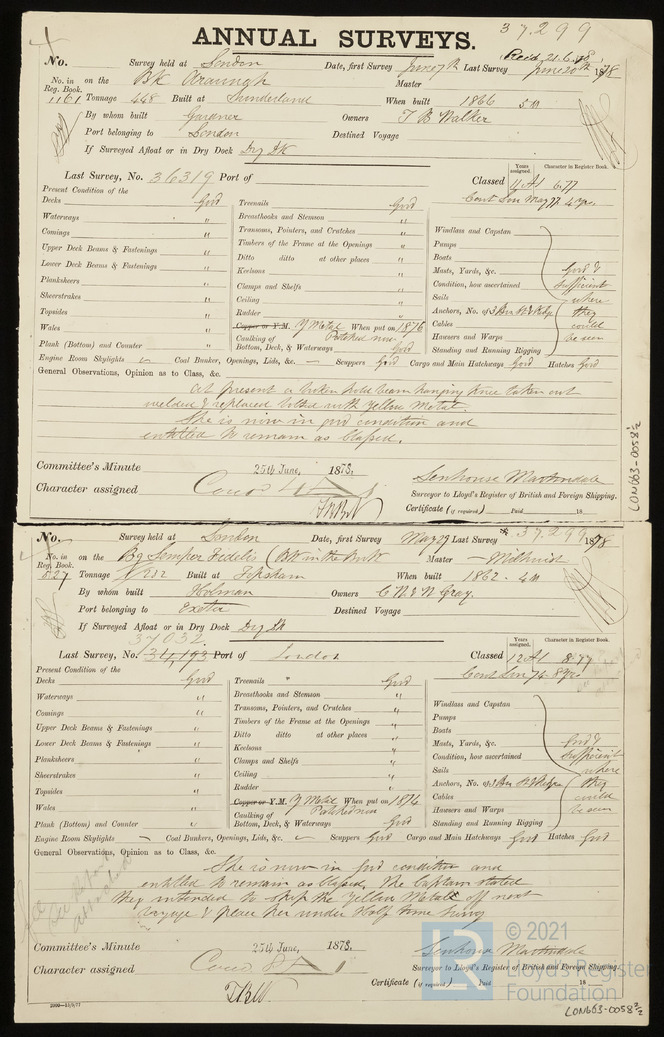 37,299
ANNUAL SURVEYS.
Recd 21.6.78
No. Survey held at London Date, first Survey June 7th Last Survey June 20th 1878
No. in Reg. Book. on the Bk Master
1161 Tonnage 448 Built at Sunderland When built 1866 5 m
By whom built Gardner Owners T B Walker
Port belonging to London Destined Voyage
If Surveyed Afloat or in Dry Dock Dry Dk
Last Survey, No. 36319 Port of Classed
Years assigned. Character in Register Book.
11 A1 6.77
Cont Lon May 77 4 yrs
Present Condition of the
Decks Good
Waterways "
Comings "
Upper Deck Beams & Fastenings "
Lower Deck Beams & Fastenings "
Planksheers "
Sheerstrakes "
Topsides "
Wales "
Plank (Bottom) and Counter "
Treenails Good
Breasthooks and Stemson "
Transoms, Pointers, and Crutches "
Timbers of the Frame at the Openings "
Ditto ditto at other places "
Keelsons "
Clamps and Shelfs "
Ceiling "
Rudder "
Copper or Y.M. Y Metal When put on 1876
Caulking of Bottom, Deck, & Waterways Good
Windlass and Capstan
Pumps
Boats
Masts, Yards, &c.
Condition, how ascertained
Sails
Anchors, No. of
Cables
Hawsers and Warps
Standing and Running Rigging
Good & sufficient where they could be seen
Engine Room Skylights — Coal Bunker, Openings, Lids, &c. — Scuppers Good Cargo and Main Hatchways Good Hatches Good
General Observations, Opinion as to Class, &c.
At present a broken hold beam hanging knee taken out
welded & replaced bolted with Yellow Metal.
She is now in good condition and
entitled to remain as Classed.
Committee's Minute 25th June, 1878.
Character assigned
Senhouse Martindale
Surveyor to Lloyd's Register of British and Foreign Shipping.
Certificate (if required) Paid 18
LON663-0058 1/2
37,299
No. Survey held at London Date, first Survey May 29 Last Survey 1878
No. in Reg. Book. on the Bg Semper Fidelis (Bk in the Book Master
527 Tonnage 202 Built at Topsham When built 1862 - 4 m
By whom built Holman Owners C N & N Gray.
Port belonging to Exeter Destined Voyage
If Surveyed Afloat or in Dry Dock Dry Dk
37032
Last Survey, No. 34,193 Port of London Classed
Years assigned. Character in Register Book.
12 A1 8.77
Cont Lon 74-8 yrs
Present Condition of the
Decks Good
Waterways "
Comings "
Upper Deck Beams & Fastenings "
Lower Deck Beams & Fastenings "
Planksheers "
Sheerstrakes "
Topsides "
Wales "
Plank (Bottom) and Counter "
Treenails " Good
Breasthooks and Stemson "
Transoms, Pointers, and Crutches "
Timbers of the Frame at the Openings "
Ditto ditto at other places "
Keelsons "
Clamps and Shelfs "
Ceiling "
Rudder "
Copper or Y.M. Y Metal When put on 1876
Caulking of Bottom, Deck, & Waterways Good
Windlass and Capstan
Pumps
Boats
Masts, Yards, &c.
Condition, how ascertained
Sails
Anchors, No. of
Cables
Hawsers and Warps
Standing and Running Rigging
Good & sufficient where they could be seen
Engine Room Skylights — Coal Bunkers, Openings, Lids, &c. — Scuppers Good Cargo and Main Hatchways Good Hatches Good
General Observations, Opinion as to Class, &c.
She is now in good condition and
entitled to remain as Classed, The Captain stated
they intended to strip the Yellow Metal off next
voyage & place her under Half time Survey
Committee's Minute 25th June, 1878.
Character assigned
Senhouse Martindale
Surveyor to Lloyd's Register of British and Foreign Shipping.
Certificate (if required) Paid 18
LR
© 2021
Lloyd's Register
Foundation
LON663-0058 2/2